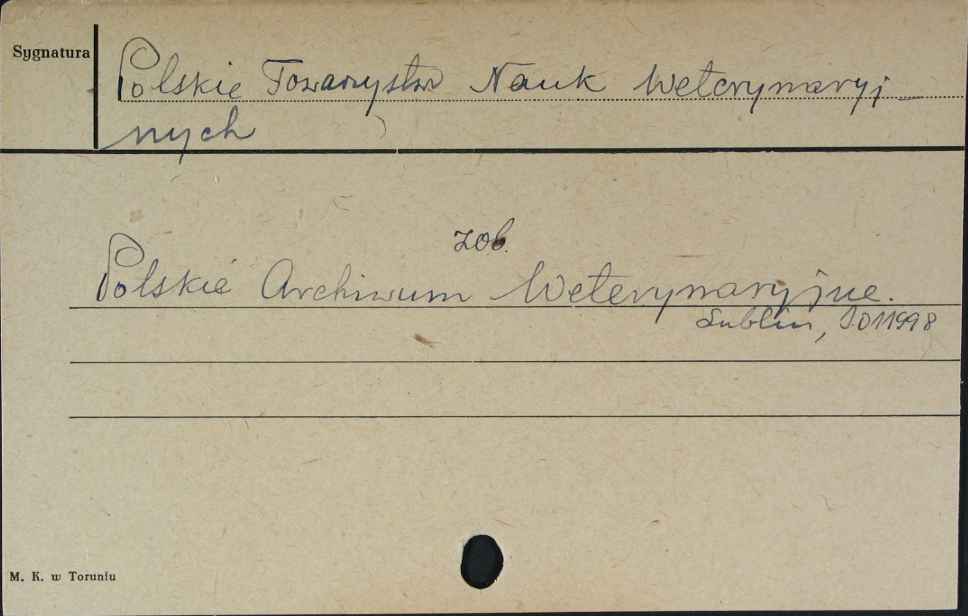 Sygnatura
Polskie Towarzystw Nauk Weterynaryj_
nych
zob.
Polskie Archiwum Weterynaryjne.
Lublin, P.011998
M. K. w Toruniu